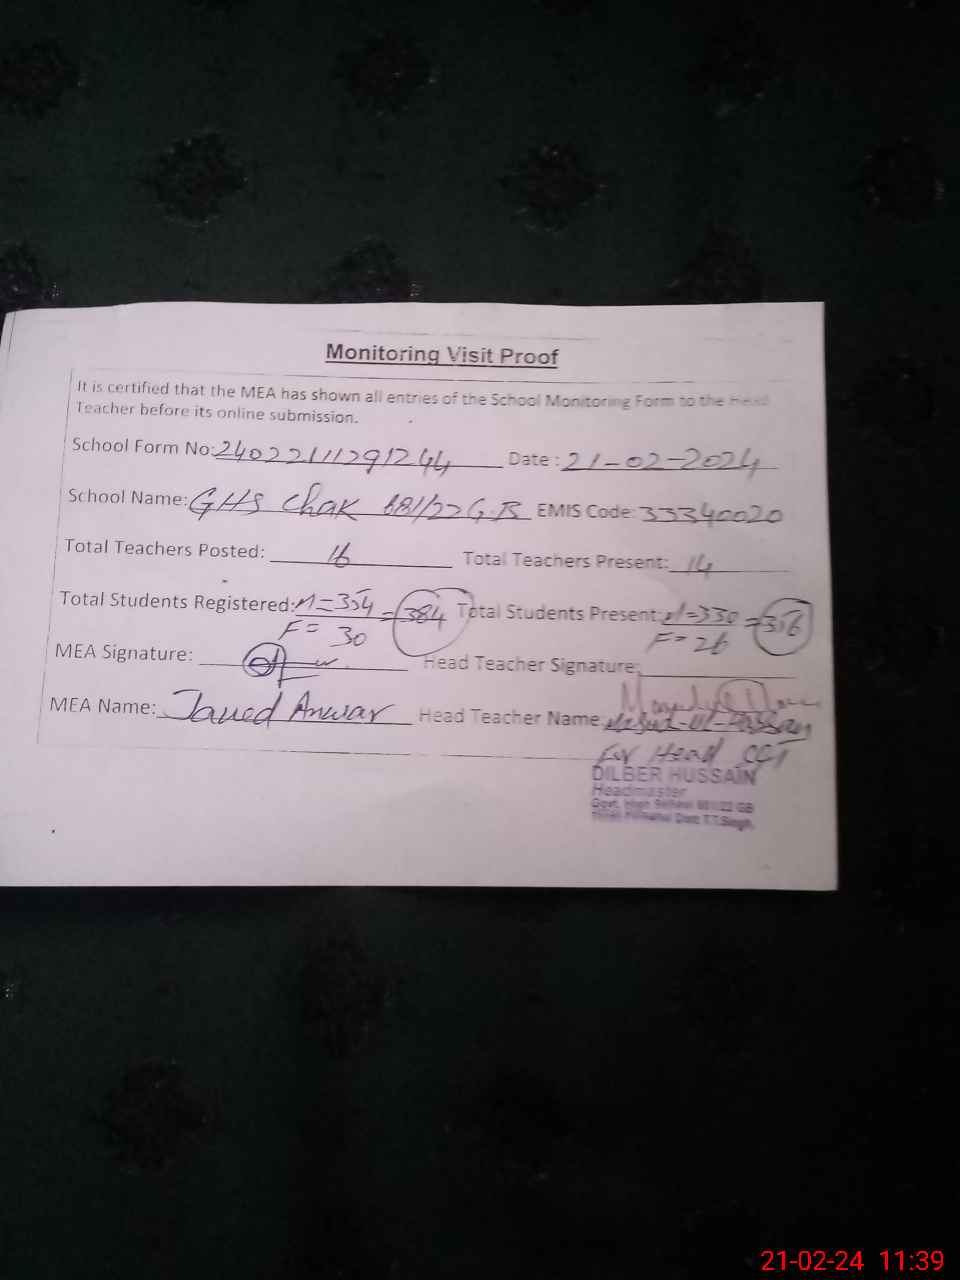 Monitoring Visit Proof
It is certified that the MEA has shown all entries of the School Monitoring Form to the Head
Teacher before its online submission.
School Form No: 24022111291244 Date: 21-02-2024
School Name: GHS Chak 681/22 G.B EMIS Code: 33340020
Total Teachers Posted: 16 Total Teachers Present: 14
Total Students Registered: M=354 =384 Total Students Present: M=330 =356
F=30 F=26
MEA Signature: Head Teacher Signature:
MEA Name: Javed Anwar Head Teacher Name:
for Head
DILBER HUSSAIN
Headmaster
Govt. High School 681/22 GB
Distt T.T.Singh.
21-02-24 11:39